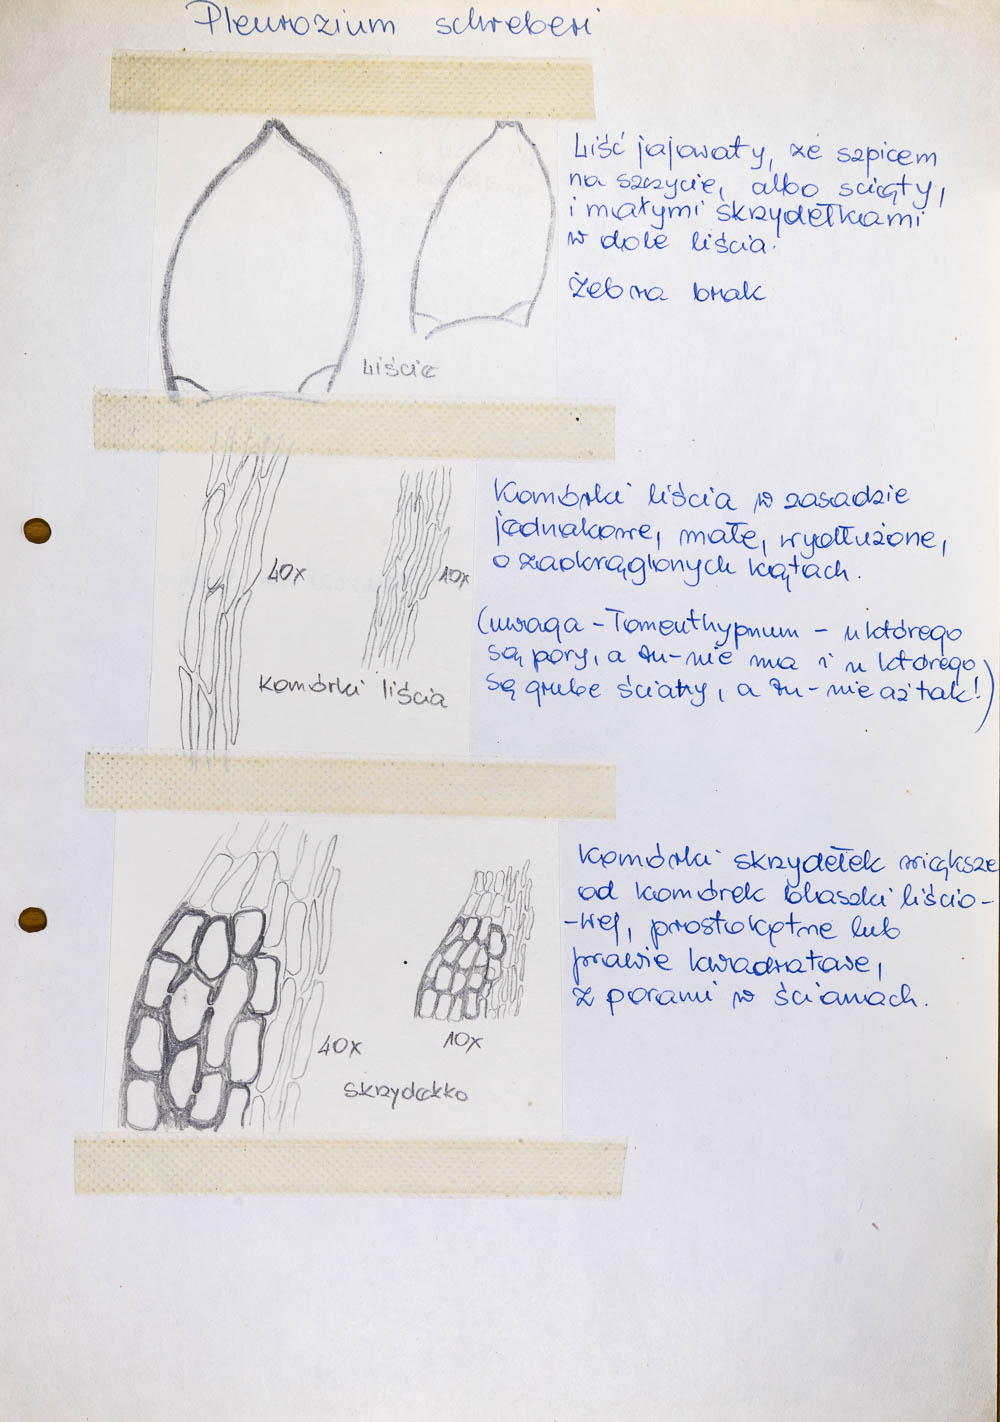 Pleurozium schreberi
Liść jajowaty, ze szpicem
na szczycie, albo ścięty,
i małymi skrzydełkami
w dole liścia.
Żebra brak
Liście
Komórki liścia w zasadzie
jednakowe, małe, wydłużone,
o zaokrąglonych kątach.
40x
10x
(uwaga - Tomenthypnum - u którego
są pory, a tu - nie ma i u którego
są grube ściany, a tu - nie aż tak!)
Komórki liścia
Komórki skrzydełek większe
od komórek blaszki liścio-
-wej, prostokątne lub
prawie kwadratowe,
z porami w ścianach.
40x
10x
Skrzydełko